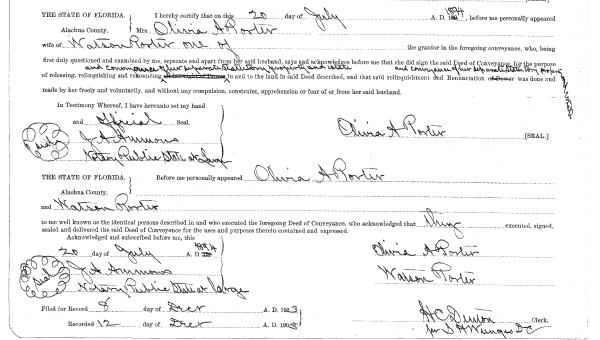 THE STATE OF FLORIDA. I hereby certify that on this 20 day of July A. D. 1894, before me personally appeared
Alachua County. Mrs Olivia A Porter
wife of Watson Porter one of the grantor in the foregoing conveyance, who, being
first duly questioned and examined by me, separate and apart from her said husband, says and acknowledges before me that she did sign the said Deed of Conveyance, for the purpose
and conveyance of her separate statutory property and estate and conveyance of her separate statutory property
of releasing, relinquishing and renouncing all her right of Dower in and to the land in said Deed described, and that said relinquishment and Renunciation of Dower was done and
made by her freely and voluntarily, and without any compulsion, constraint, apprehension or fear of or from her said husband.
In Testimony Whereof, I have hereunto set my hand
and official Seal.
Seal J A Ammons Olivia A Porter [SEAL]
Notary Public State at Large
THE STATE OF FLORIDA. Before me personally appeared Olivia A Porter
Alachua County.
and Watson Porter
to me well known as the identical persons described in and who executed the foregoing Deed of Conveyance, who acknowledged that they executed, signed,
sealed and delivered the said Deed of Conveyance for the uses and purposes therein contained and expressed.
Acknowledged and subscribed before me, this
20 day of July A. D. 1894 Olivia A Porter
Seal J A Ammons Watson Porter
Notary Public State at large
Filed for Record 8 day of Dec A. D. 1903
Recorded 12 day of Dec A. D. 1903 H C Denton Clerk.
per S H Wienges D C